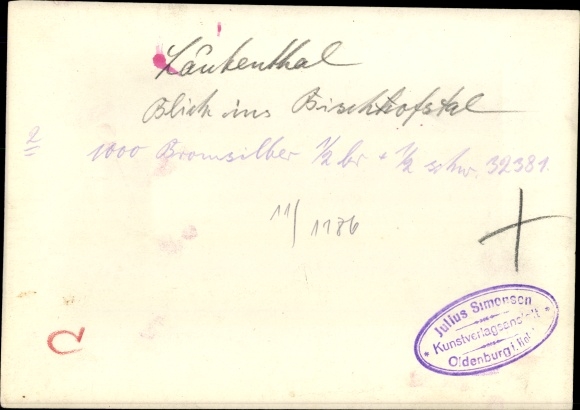 Lautenthal
Blick ins Bischhofstal
2
1000 Bromsilber 1/2 br + 1/2 schw. 32381.
11/1186
Julius Simonsen
Kunstverlagsanstalt
Oldenburg i. Hol.